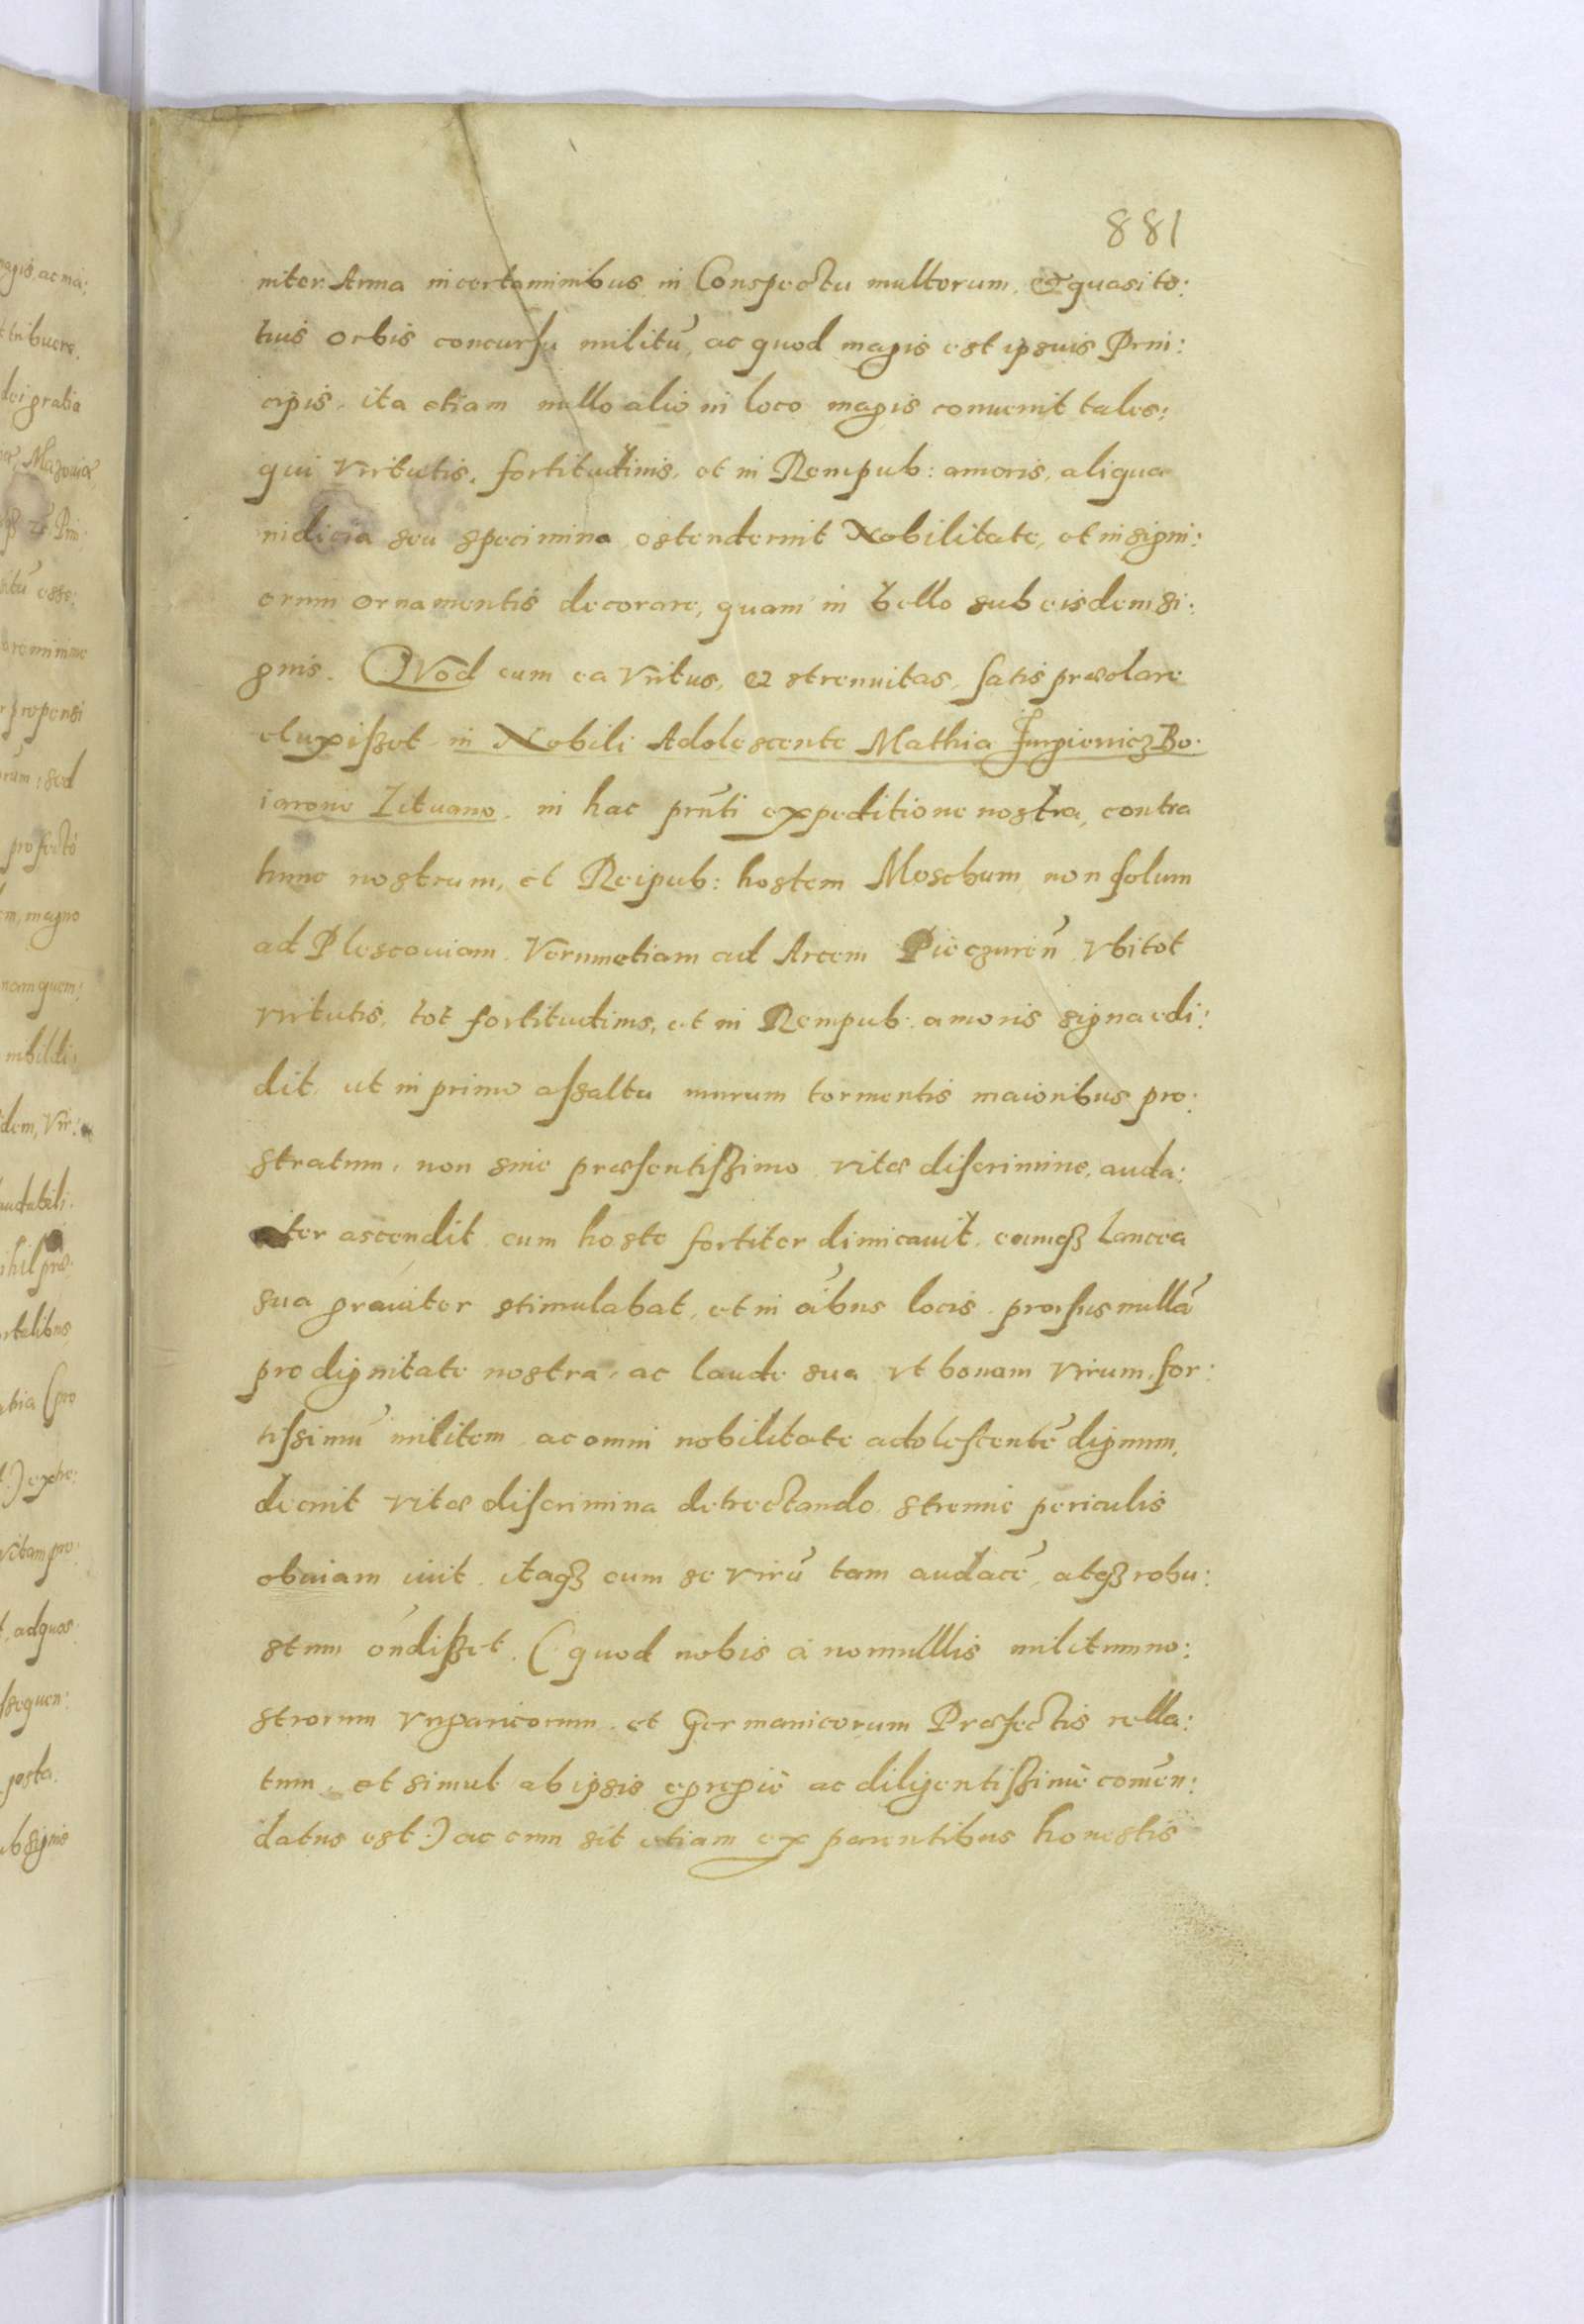 881
inter Arma in certaminibus in Conspectu multorum, et quasi to:
tius orbis concursu militū, ac quod magis est ipsius Prin:
cipis, ita etiam nullo alio in loco magis convenit tales:
qui virtutis, fortitudinis, et in Rempub: amoris, aliqua
indicia seu specimina ostenderint Nobilitate, et insigni:
orum ornamentis decorare, quam in bello sub eisdem si:
gnis. QVod cum ea virtus, et strenuitas, satis præclare
eluxisset in Nobili Adolescente Mathia Bo:
iarone Lituano, in hac prn̄ti expeditione nostra, contra
hunc nostrum, et Reipub: hostem Moschum, non solum
ad Plescouiam, Verumetiam ad Arcem Pieczureñ, Vbi tot
virtutis, tot fortitudinis, et in Rempub: amoris signa edi:
dit, ut in primo assaltu murum tormentis maioribus pro:
stratum, non sine præsentissimo vitæ discrimine, auda:
cter ascendit, cum hoste fortiter dimicauit, eumq3 Lancea
sua grauiter stimulabat, et in oībus locis, prorsus nullā
pro dignitate nostra, ac laude sua, vt bonam virum, for:
tissimū militem, ac omni nobilitate adolescentē dignum,
decuit vitæ discrimina detrectando, strenue periculis
obuiam iuit, itaq3 cum se virū tam audacē, atq3 robu:
stum on̄disset, (quod nobis à nonnulllis militum no:
strorum Vngaricorum, et Germanicorum Præfectis rella:
tum, et simul ab ipsis egregiè ac diligentissimè com̄en:
datus est:) ac cum sit etiam ex parentibus honestis
magis, ac ma:
tribuere,
dei gratia